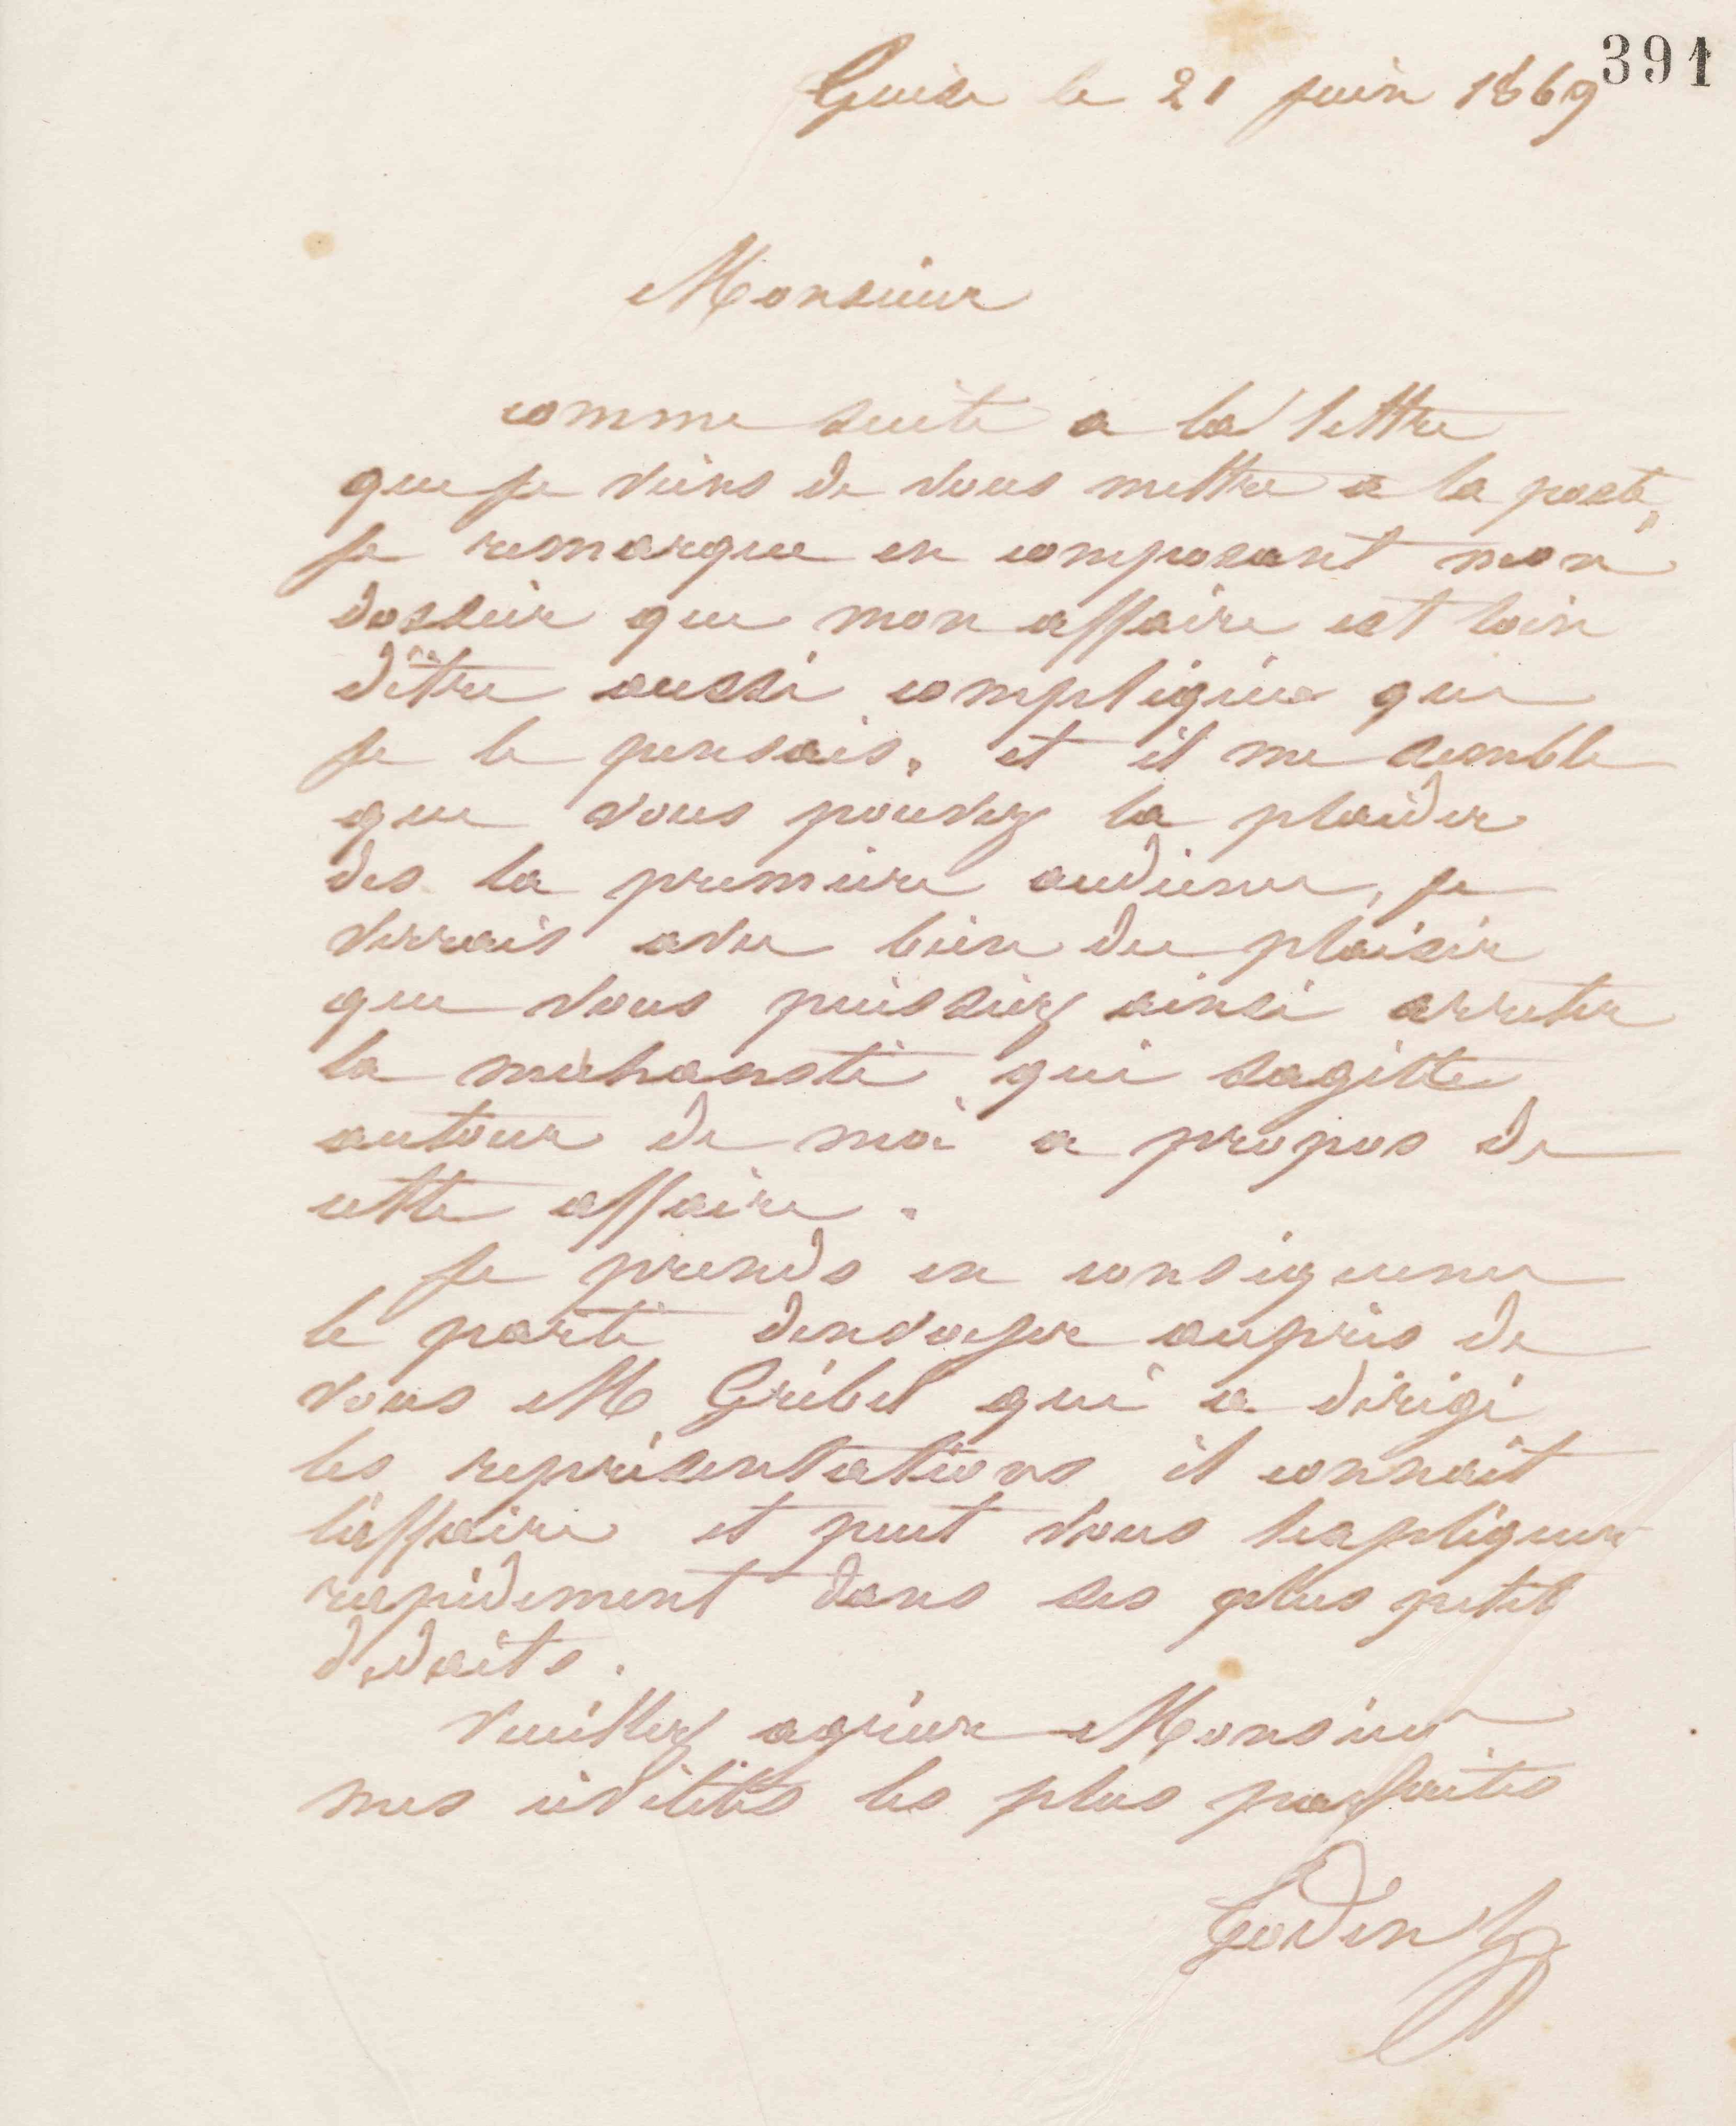 391
Guise le 21 juin 1869
Monsieur
comme suite a la lettre
que je viens de vous mettre a la poste,
je remarque en composant mon
dossier que mon affaire est loin
dêtre aussi compliquée que
je le pensais, et il me semble
que vous pouvez la plaider
des la premiere audience, je
verrais avec bien du plaisir
que vous puissiez ainsi arreter
la mechanste qui sagitte
autour de moi a propos de
cette affaire.
Je prends en consequence
le parti denvoyer aupres de
vous M Grebel qui a dirigé
les représentations il connait
l'affaire et peut vous lexpliquer
rapidement dans ses plus petits
details.
Veuillez agréer Monsieur
mes civilités les plus parfaites
Godin